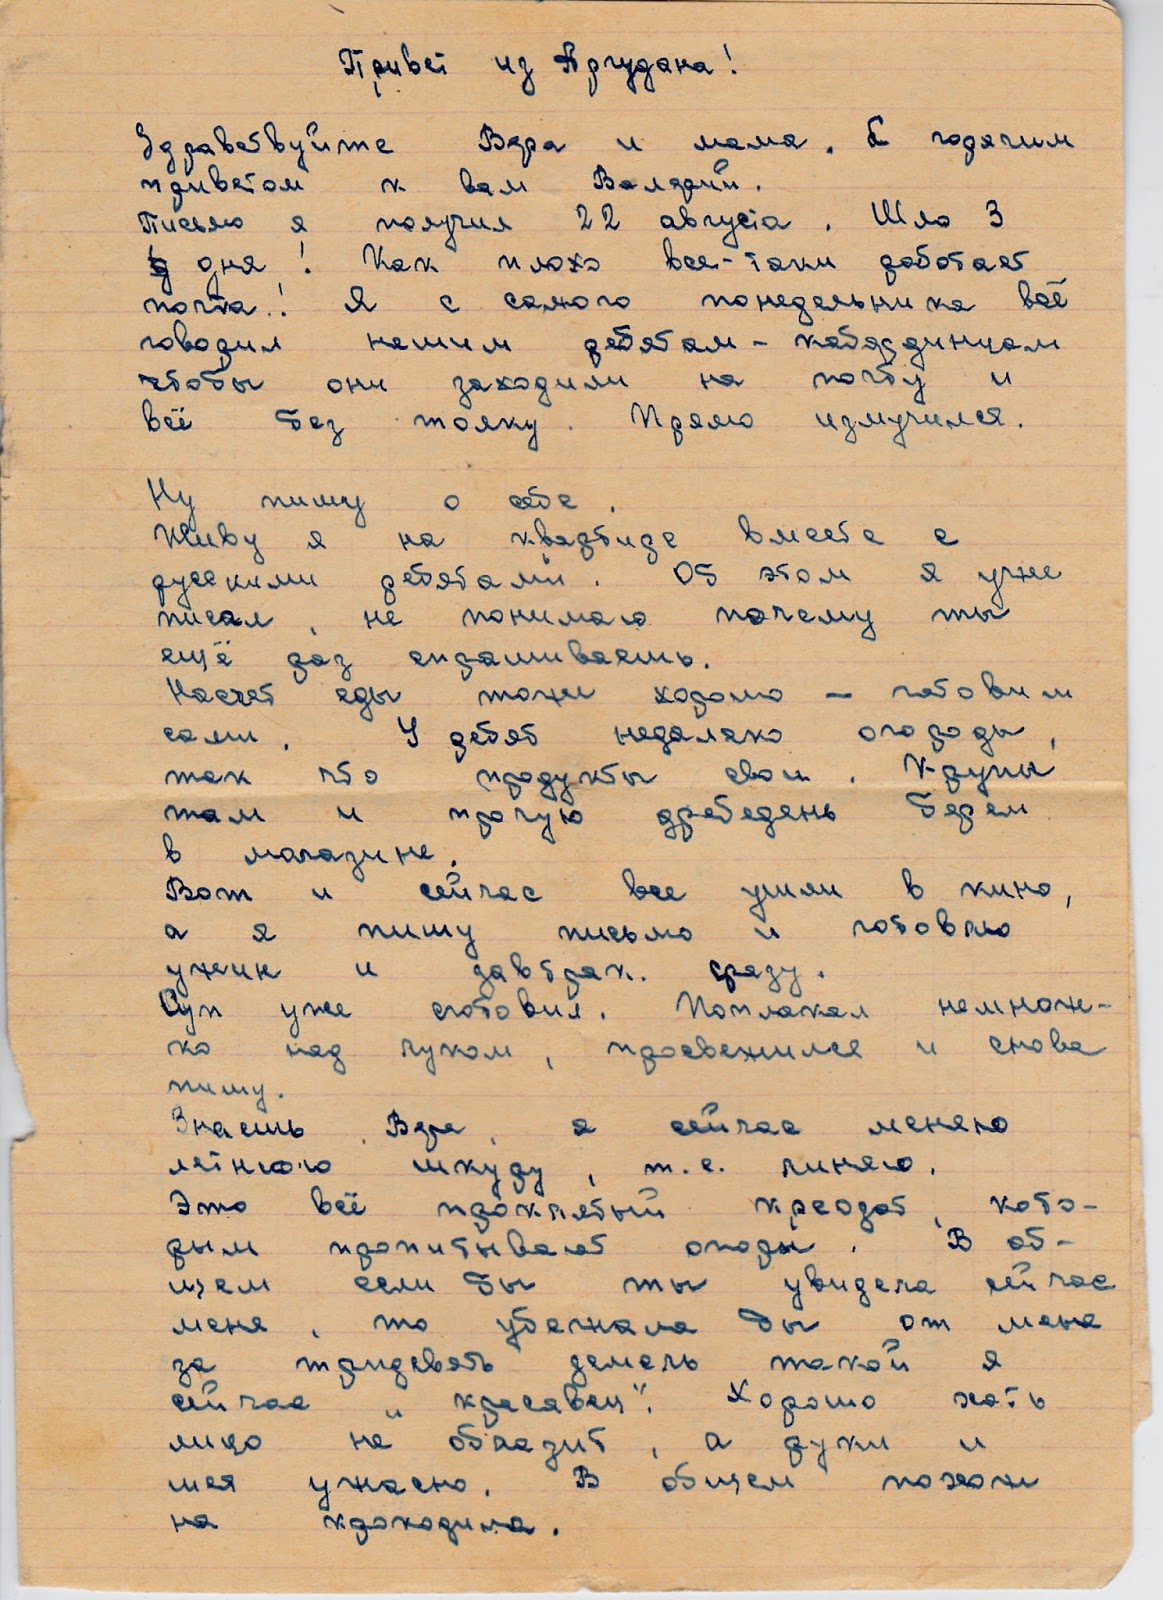 Привет из Аргудана!
Здравствуйте Вера и мама. С горячим
приветом к вам Валерий.
Письмо я получил 22 августа. Шло 3
дня! Как плохо все-таки работает
почта! Я с самого понедельника всё
говорил нашим ребятам-кабардинцам
чтобы они заходили на почту и
всё без толку. Прямо измучился.
Ну пишу о себе.
Живу я на квартире вместе с
русскими ребятами. Об этом я уже
писал, не понимаю почему ты
ещё раз спрашиваешь.
Насчет еды тоже хорошо – готовим
сами. У ребят недалеко огороды,
так что продукты свои. Крупы
там и прочую дребедень берем
в магазине.
Вот и сейчас все ушли в кино,
а я пишу письмо и готовлю
ужин и завтрак. сразу.
Суп уже сготовил. Поплакал немнож-
ко над луком, просвежился и снова
пишу.
Знаешь, Вера, я сейчас меняю
летнюю шкуру, т.е. линяю.
Это всё проклятый креозот, кото-
рым пропитывают опоры. В об-
щем если бы ты увидела сейчас
меня, то убежала бы от меня
за тридевять земель такой я
сейчас „красавец". Хорошо хоть
лицо не облазит, а руки и
шея ужасно. В общем похож
на крокодила.